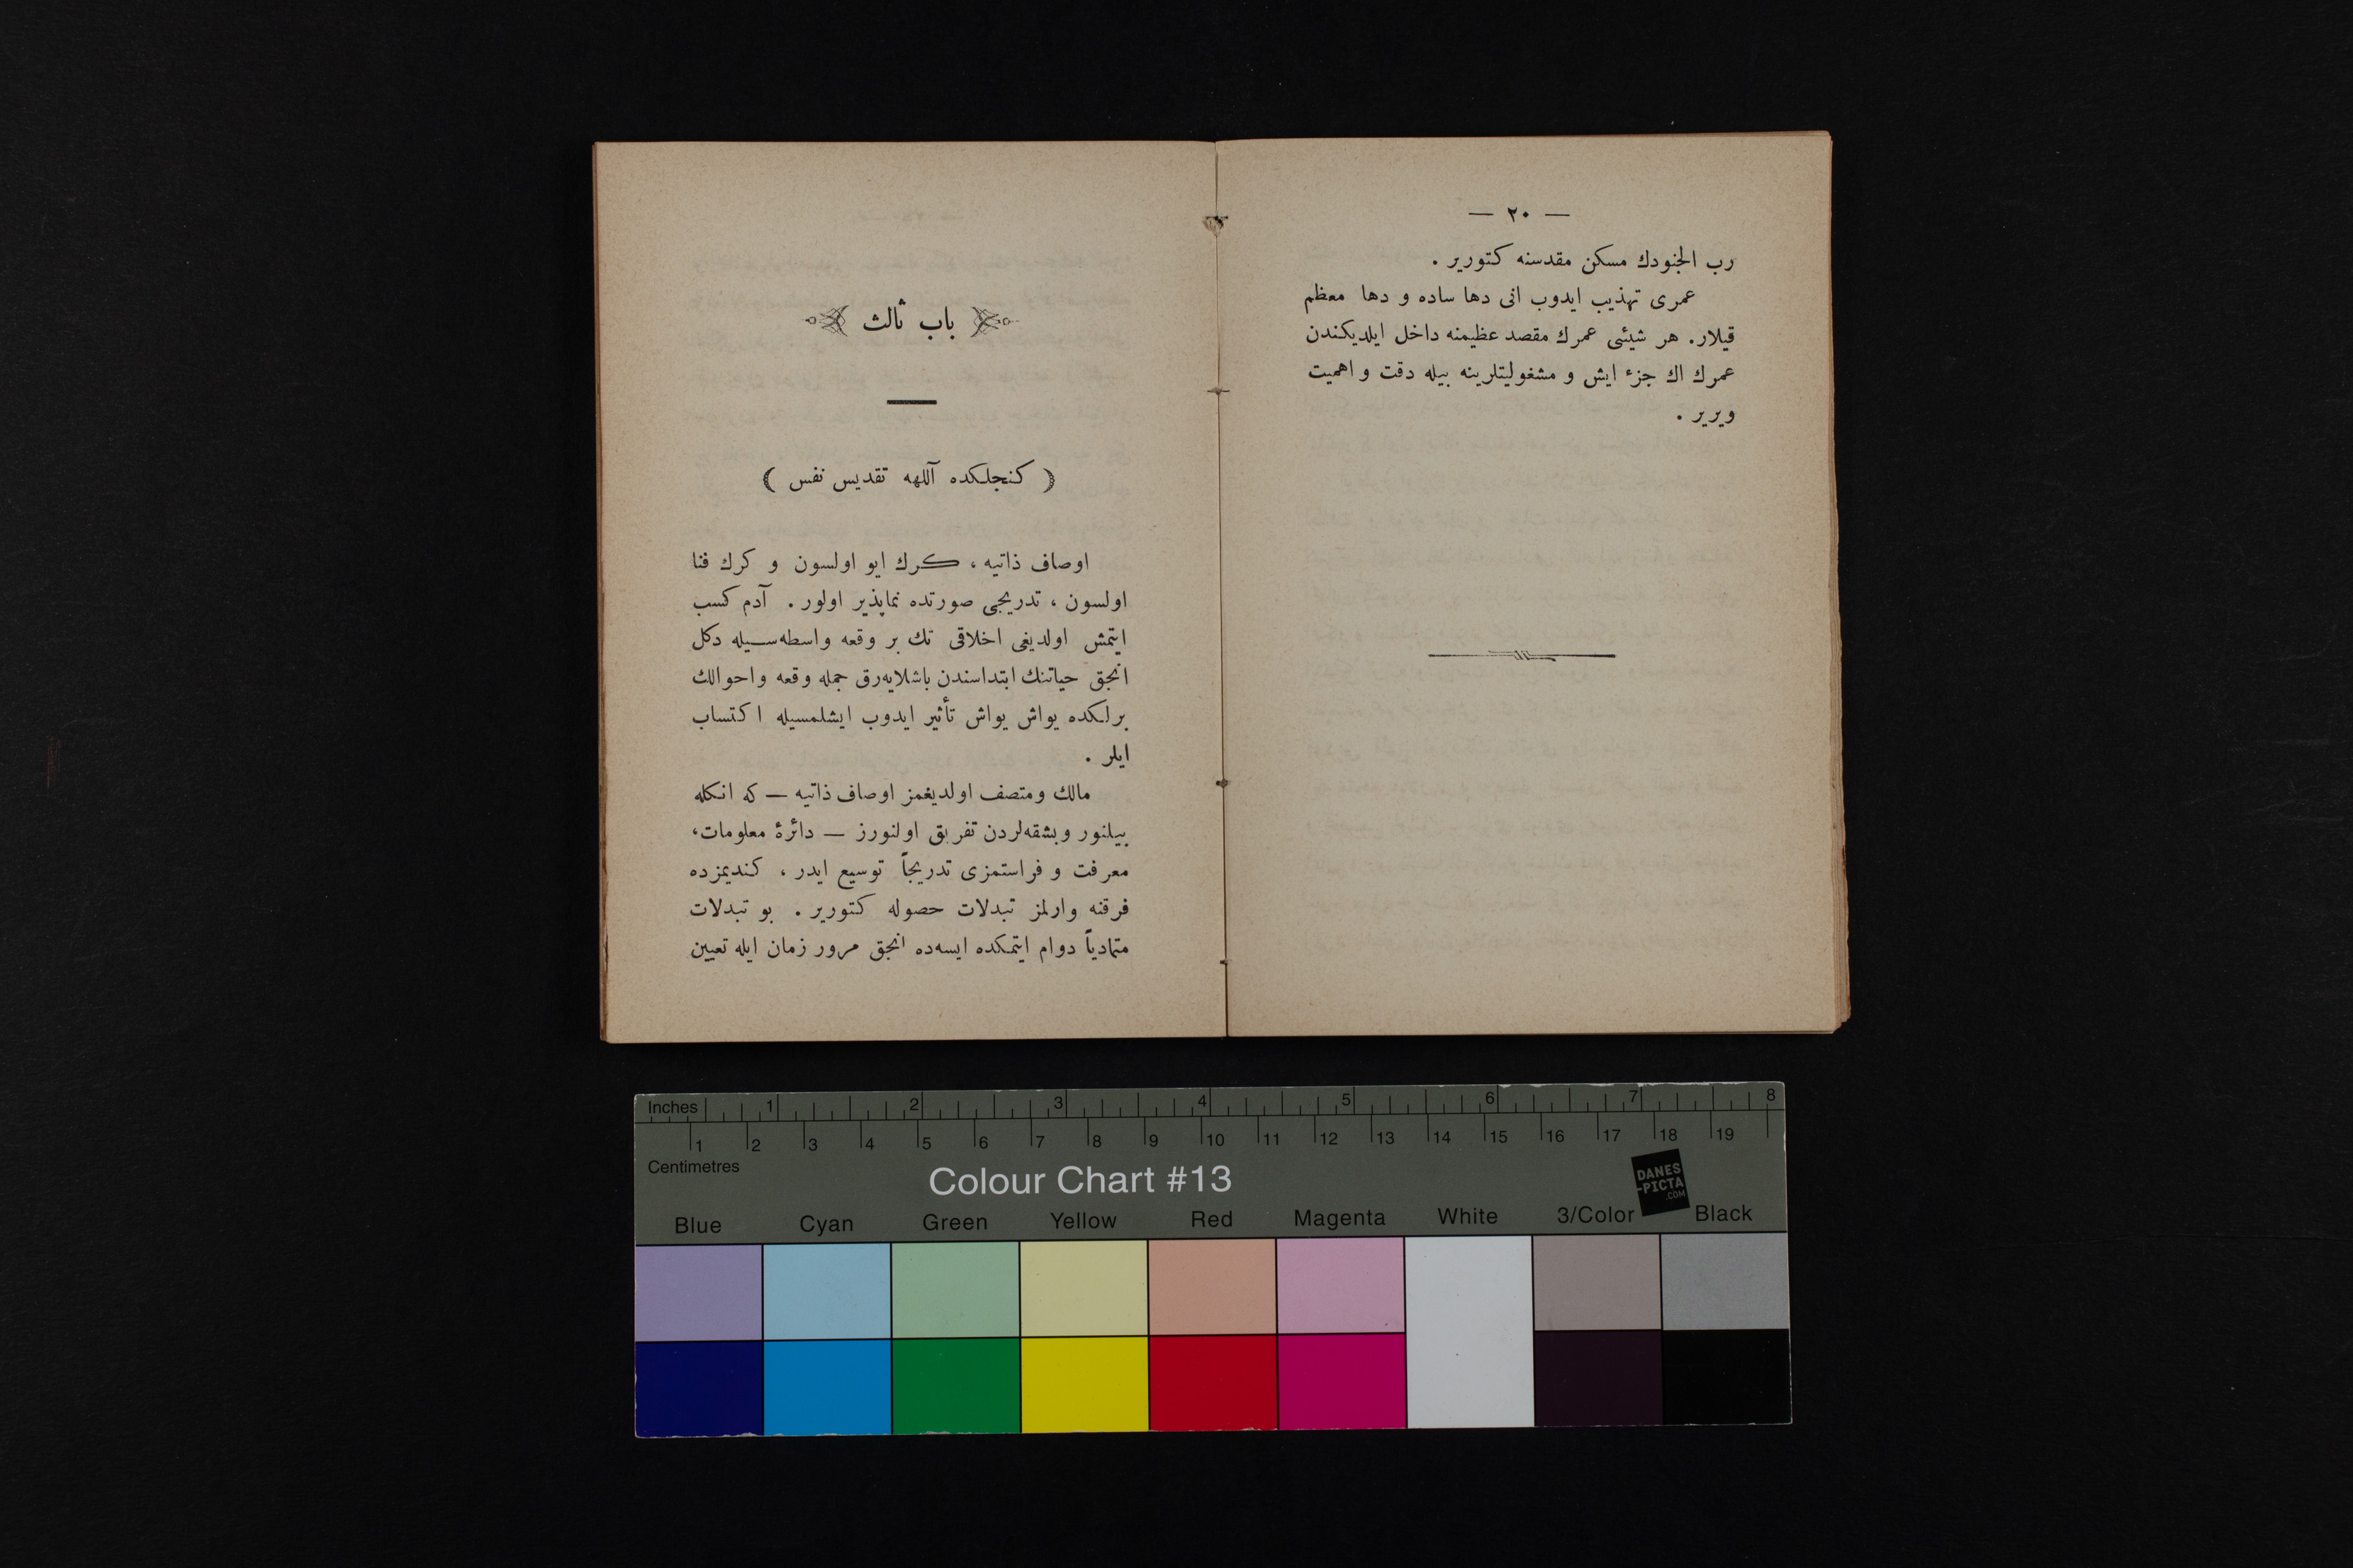 — ٢٠ —
رب الجنودك مسكن مقدسنه كتورير .
عمرى تهذيب ايدوب انى دها ساده و دها معظم
قيلار. هر شيئى عمرك مقصد عظيمنه داخل ايلديكندن
عمرك اك جزء ايش و مشغوليتلرينه بيله دقت و اهميت
ويرير .
باب ثالث
( كنجلكده آللهه تقديس نفس )
اوصاف ذاتيه ، كرك ايو اولسون و كرك فنا
اولسون ، تدريجى صورتده نماپذير اولور . آدم كسب
ايتمش اولديغى اخلاقى تك بر وقعه واسطه‌سيله دكل
انجق حياتنك ابتداسندن باشلايه‌رق جمله وقعه و احوالك
برلكده يواش يواش تأثير ايدوب ايشلمسيله اكتساب
ايلر .
مالك و متصف اولديغمز اوصاف ذاتيه — كه انكله
بيلنور و بشقه‌لردن تفريق اولنورز — دائرهٔ معلومات،
معرفت و فراستمزى تدريجاً توسيع ايدر ، كنديمزده
فرقنه وارلمز تبدلات حصوله كتورير . بو تبدلات
متمادياً دوام ايتمكده ايسه‌ده انجق مرور زمان ايله تعيين
Inches 1 2 3 4 5 6 7 8
1 2 3 4 5 6 7 8 9 10 11 12 13 14 15 16 17 18 19
Centimetres
Colour Chart #13
DANES
-PICTA
.COM
Blue Cyan Green Yellow Red Magenta White 3/Color Black